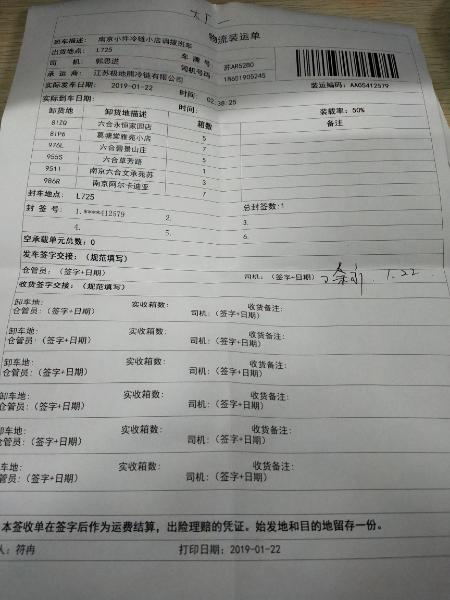 物流装运单
班车描述: 南京小件冷链小店调拨出车
出货地点: L725
车牌号: 苏AR5280
司 机: 郭思进
司机号码: 18651905245
承 运 商: 江苏极地熊冷链有限公司
装运编码: AA05412579
实际发车日期: 2019-01-22
时间: 02:38:25
实际到车日期:
时间:
装载率: 50%
卸货地 卸货地描述 箱数 备注
8IZQ 六合永恒家园店 5
8IP6 葛塘堂雅苑小店 5
976L 六合碧景山庄 7
955S 六合草芳路 5
9511 南京六合文承苑苏 1
986R 南京阿尔卡迪亚 3
7
封车地点: L725
总封签数:1
封 签 号: 1.****412579 2. 3.
4. 5. 6.
空承载单元总数: 0
发车签字交接: (规范填写)
仓管员: (签字+日期) 司机: (签字+日期) 1.22
收货签字交接: (规范填写)
卸车地: 实收箱数: 收货备注:
仓管员: (签字+日期) 司机: (签字+日期)
卸车地: 实收箱数: 收货备注:
仓管员: (签字+日期) 司机: (签字+日期)
卸车地: 实收箱数: 收货备注:
仓管员: (签字+日期) 司机: (签字+日期)
卸车地: 实收箱数: 收货备注:
仓管员: (签字+日期) 司机: (签字+日期)
卸车地: 实收箱数: 收货备注:
仓管员: (签字+日期) 司机: (签字+日期)
车地: 实收箱数: 收货备注:
管员: (签字+日期) 司机: (签字+日期)
本签收单在签字后作为运费结算，出险理赔的凭证。始发地和目的地留存一份。
人: 符冉 打印日期: 2019-01-22